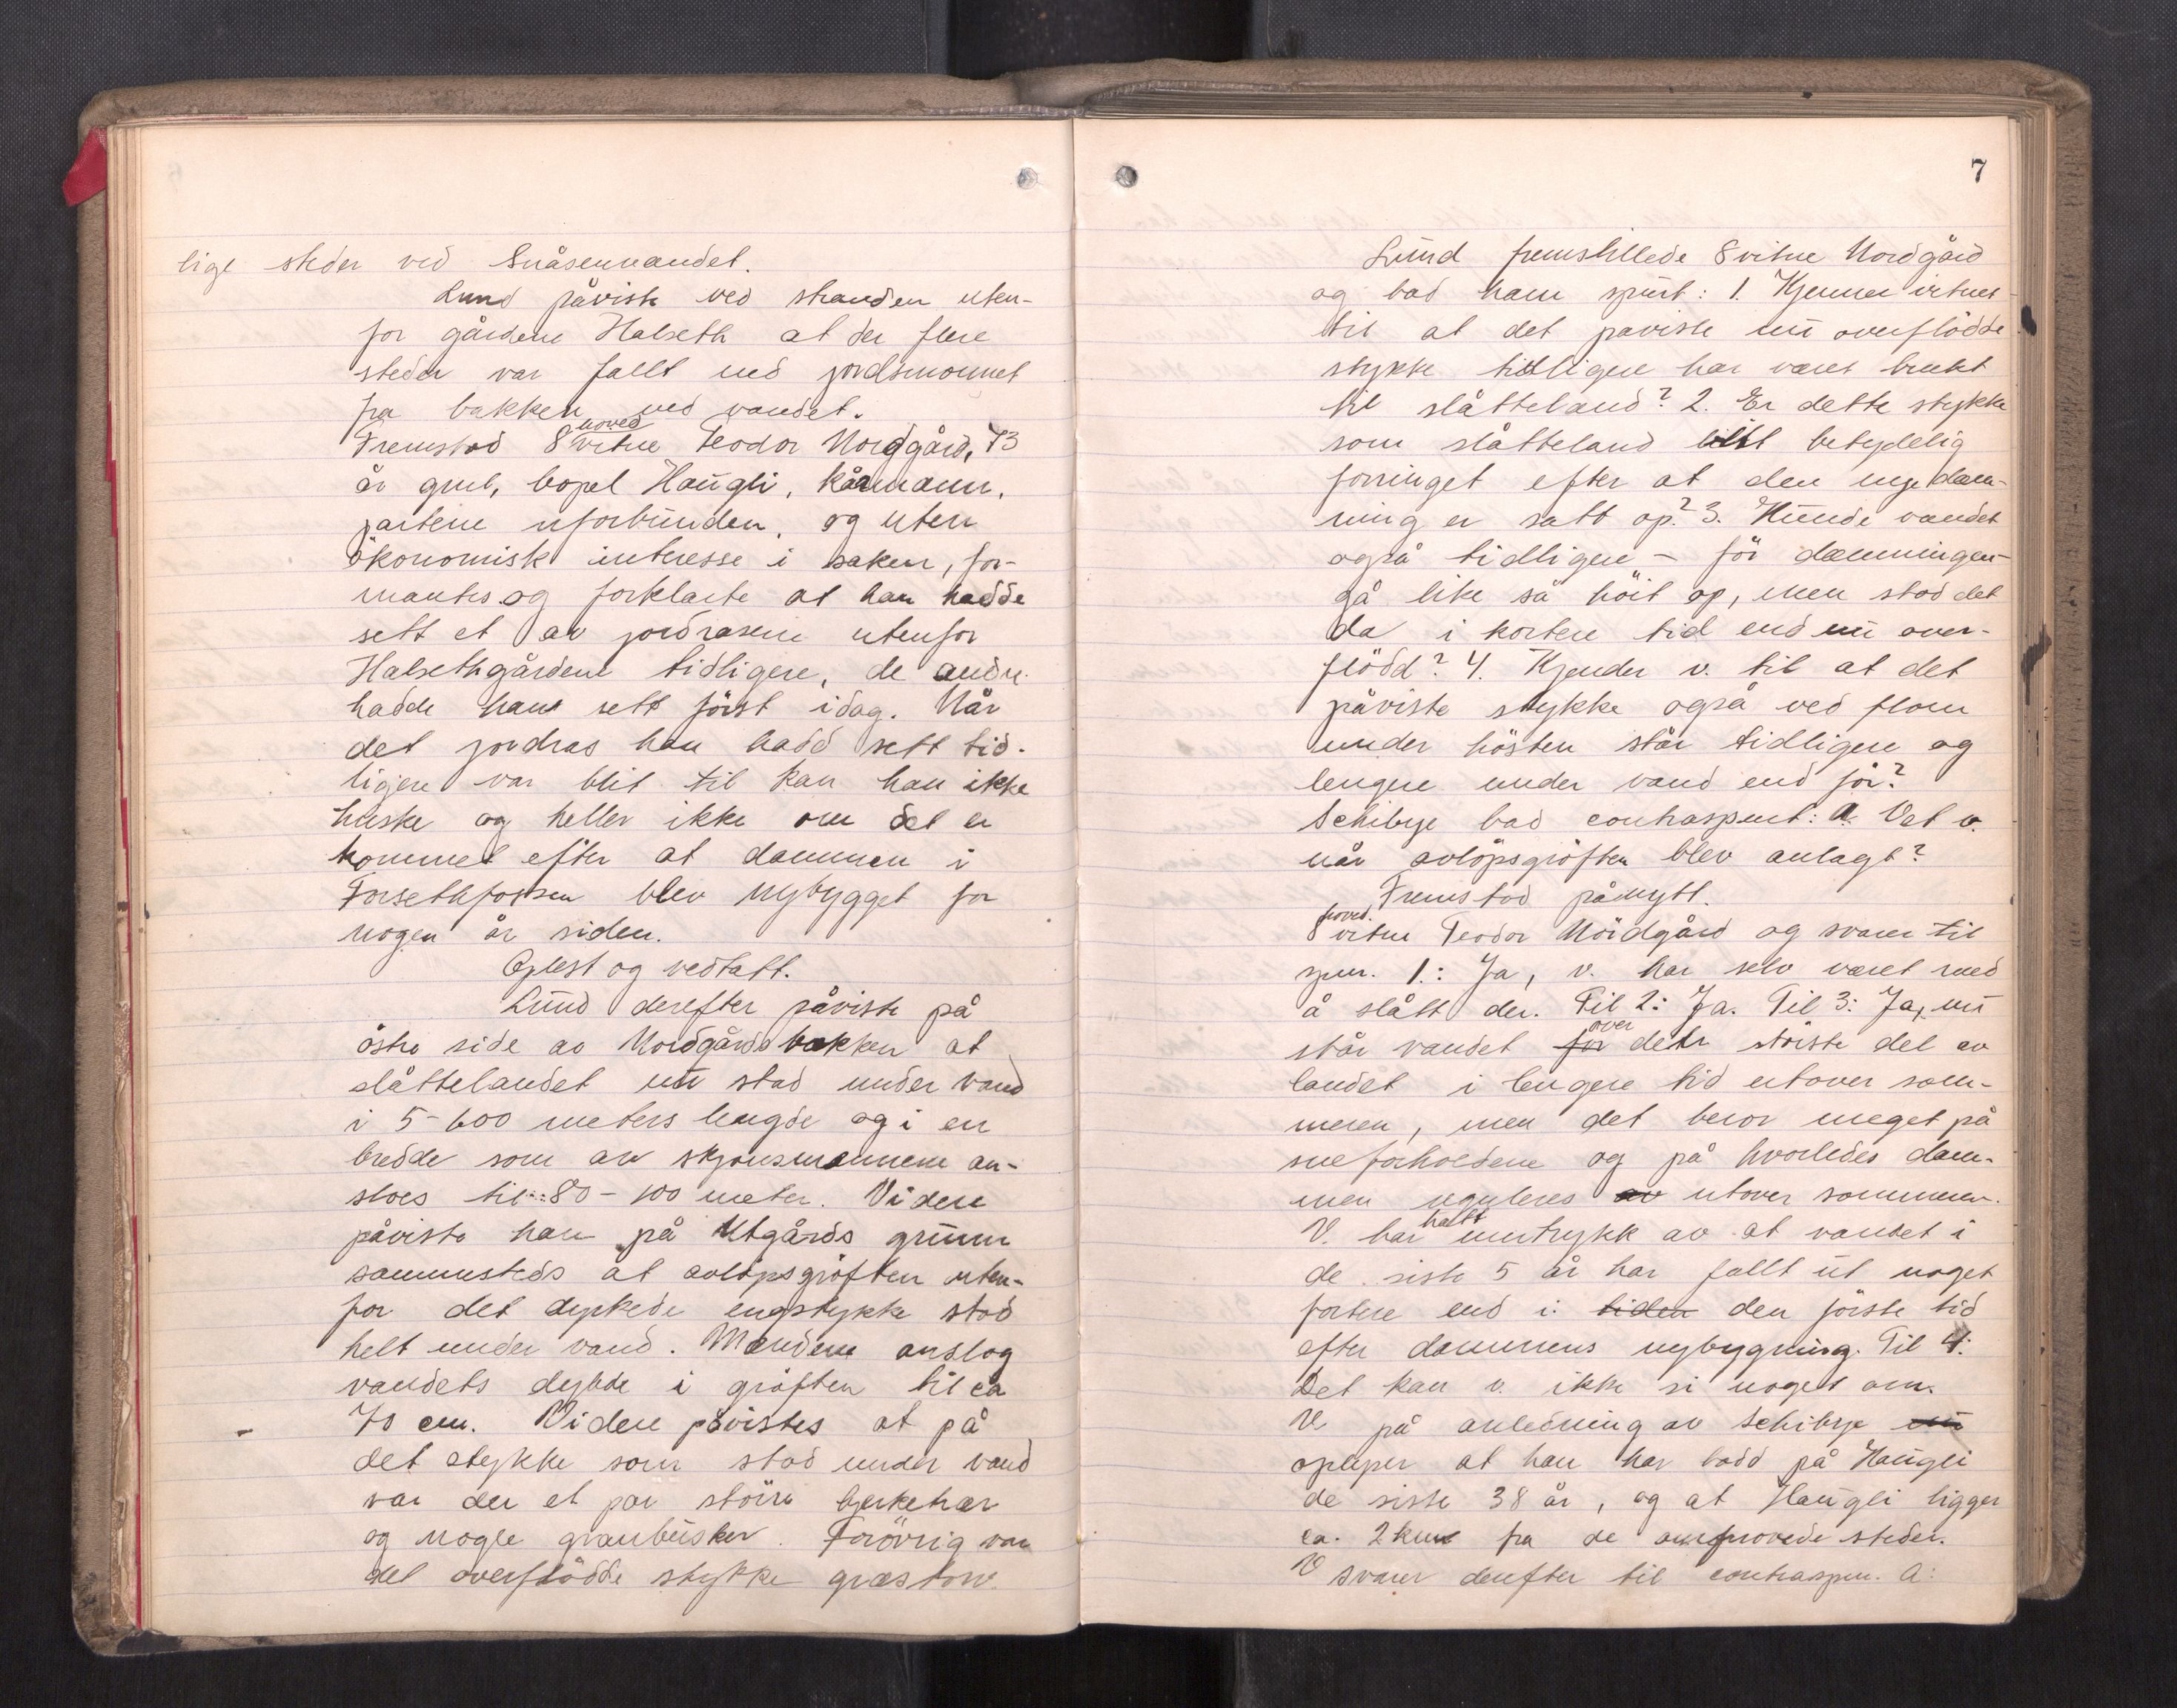 lige steder ved Snåsenvandet.
Lund påviste ved stranden uten-
for gårdene Halseth at der flere
steder var fallt ned jordsmonnet
fra bakken ved vandet.
hoved
Fremstod 8 vitne Teodor Nordgård, 73
år gml, bopel Haugli, kårmann,
partene uforbunden, og uten
økonomisk interesse i saken, for-
mantes og forklarte at han hadde
sett et av jordrasene utenfor
Halsethgårdene tidligere, de andre
hadde han sett først idag. Når
det jordras han hadd sett tid-
ligere var blit til kan han ikke
huske og heller ikke om det er
kommet efter at dammen i
Forsethfossen blev nybygget for
nogen år siden.
Oplest og vedtatt.
Lund derefter påviste på
østre side av Nordgårdsbakken at
slåttelandet nu stod under vand
i 5-600 meters lengde og i en
bredde som av skjønsmannene an-
sloes til: 80 - 100 meter. Videre
påviste han på Utgårds grunn
sammesteds at avløpsgrøften uten-
for det dyrkede engstykke stod
helt under vand. Mændene anslog
vandets dybde i grøften til ca
70 cm. Videre påvistes at på
det stykke som stod under vand
var der et par större bjerketrær
og nogle granbusker. Forövrig var
det overflödde stykke græstorv.
7
Lund fremstillede 8 vitne Nordgård
og bad ham spurt: 1. Kjenner vitnet
til at det påviste nu overflödde
stykke tidligere har været brukt
til slåtteland? 2. Er dette stykke
som slåtteland blit betydelig
forringet efter at den nye dam-
ning er satt op? 3. Kunde vandet
også tidligere - för dæmningen -
gå like så höit op, men stod det
da i kortere tid end nu over-
flödd? 4. Kjender v. til at det
påviste stykke også ved flom
under hösten står tidligere og
lengere under vand end för?
Schibye bad contraspurt: a. Vet v.
når avlöpsgröften blev anlagt?
Fremstod pånytt.
hoved.
8 vitne Teodor Nordgård og svarer til
spm. 1.: Ja, v. har selv været med
å slått der. Til 2: Ja. Til 3: Ja, nu
over
står vandet for dette störste del av
landet i lengere tid utover som-
meren, men det beror meget på
sneforholdene og på hvorledes dam-
men reguleres av utover sommeren.
hatt
V. har inntrykk av at vandet i
de siste 5 år har fallt ut noget
fortere end i tiden den förste tid
efter dammens nybygning. Til 4:
Det kan v. ikke si noget om.
V. på anledning av Schibye nu
oplyser at han har bodd på Haugli
de siste 38 år, og at Haugli ligger
ca. 2 km fra de omprovede steder.
V svarer derefter til contraspm. a: